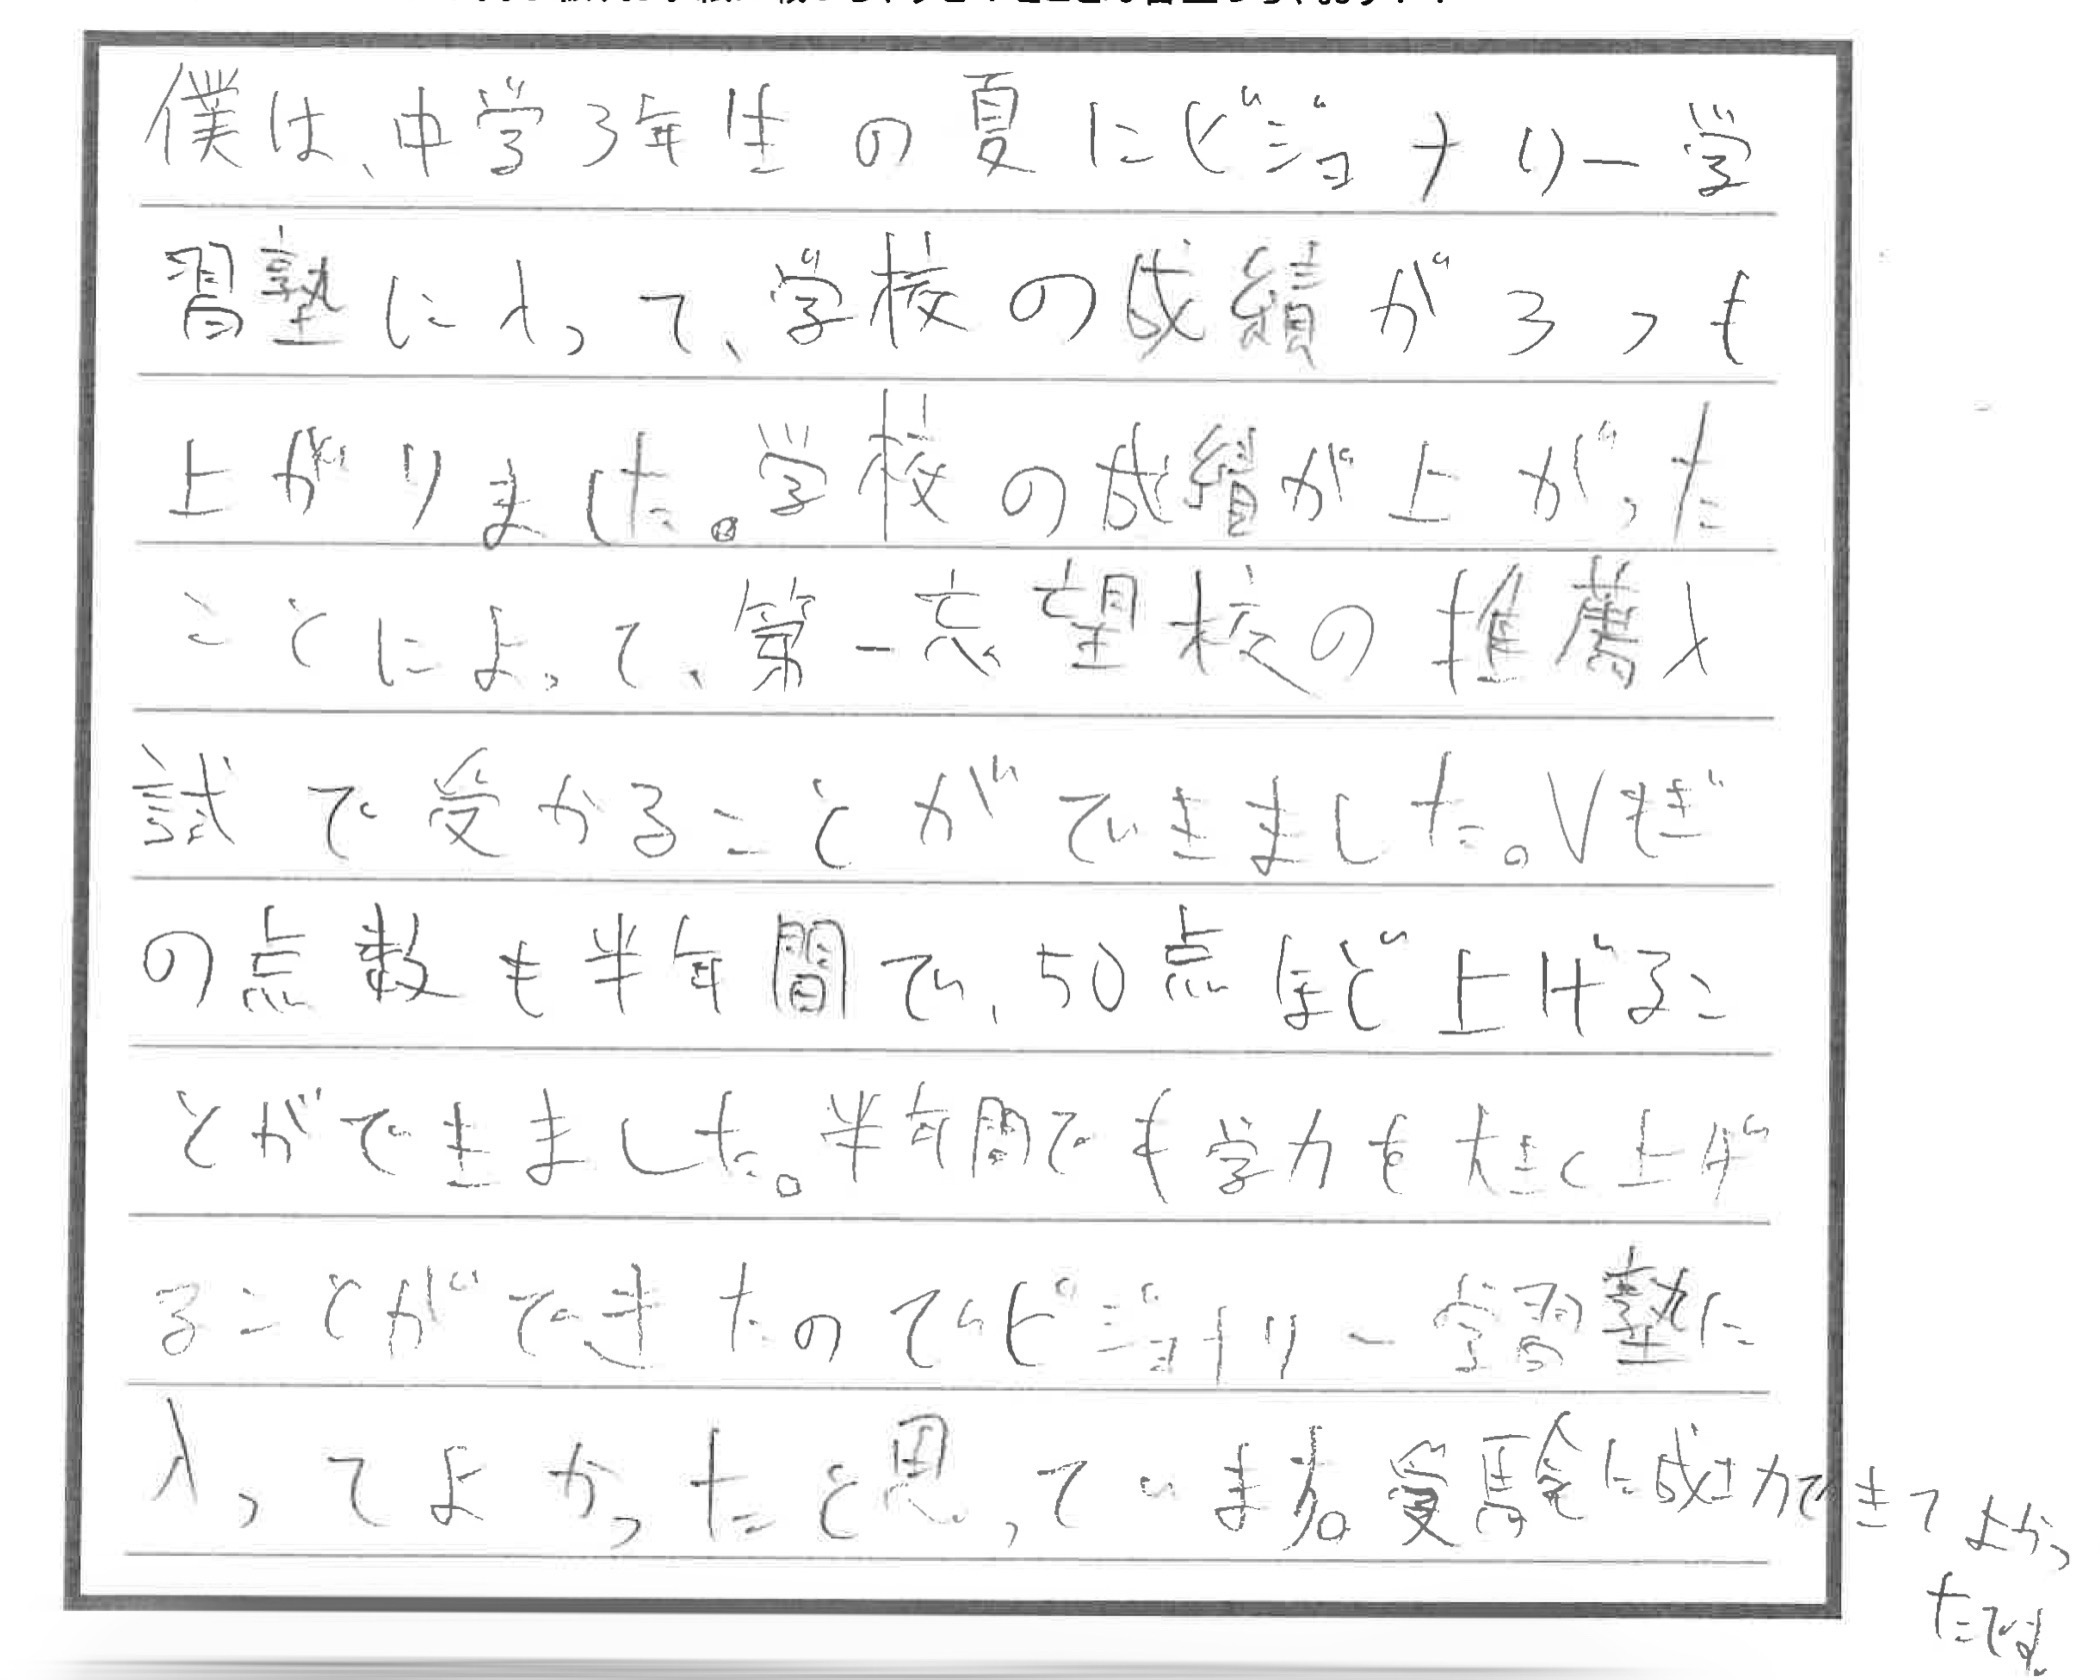 僕は、中学3年生の夏にビジョナリー学
習塾に入って、学校の成績が3つも
上がりました。学校の成績が上がった
ことによって、第一志望校の推薦入
試で受かることができました。Vもぎ
の点数も半年間で、50点ほど上げるこ
とができました。半年間でも学力を大きく上げ
ることができたのでビジョナリー学習塾に
入ってよかったと思っています。受験に成功できてよかっ
たです。